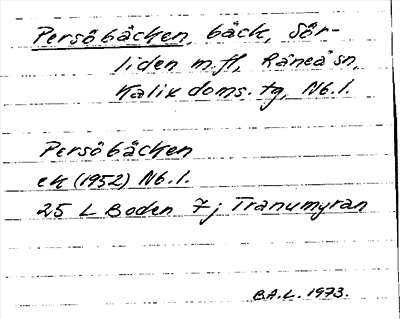 Persöbäcken, bäck, Sör-
liden m.fl, Råneå sn,
Kalix doms. tg, Nb.l.
Persöbäcken
ek (1952) Nb.l.
25 L Boden 7j Tranumyran
B.A.L. 1973.